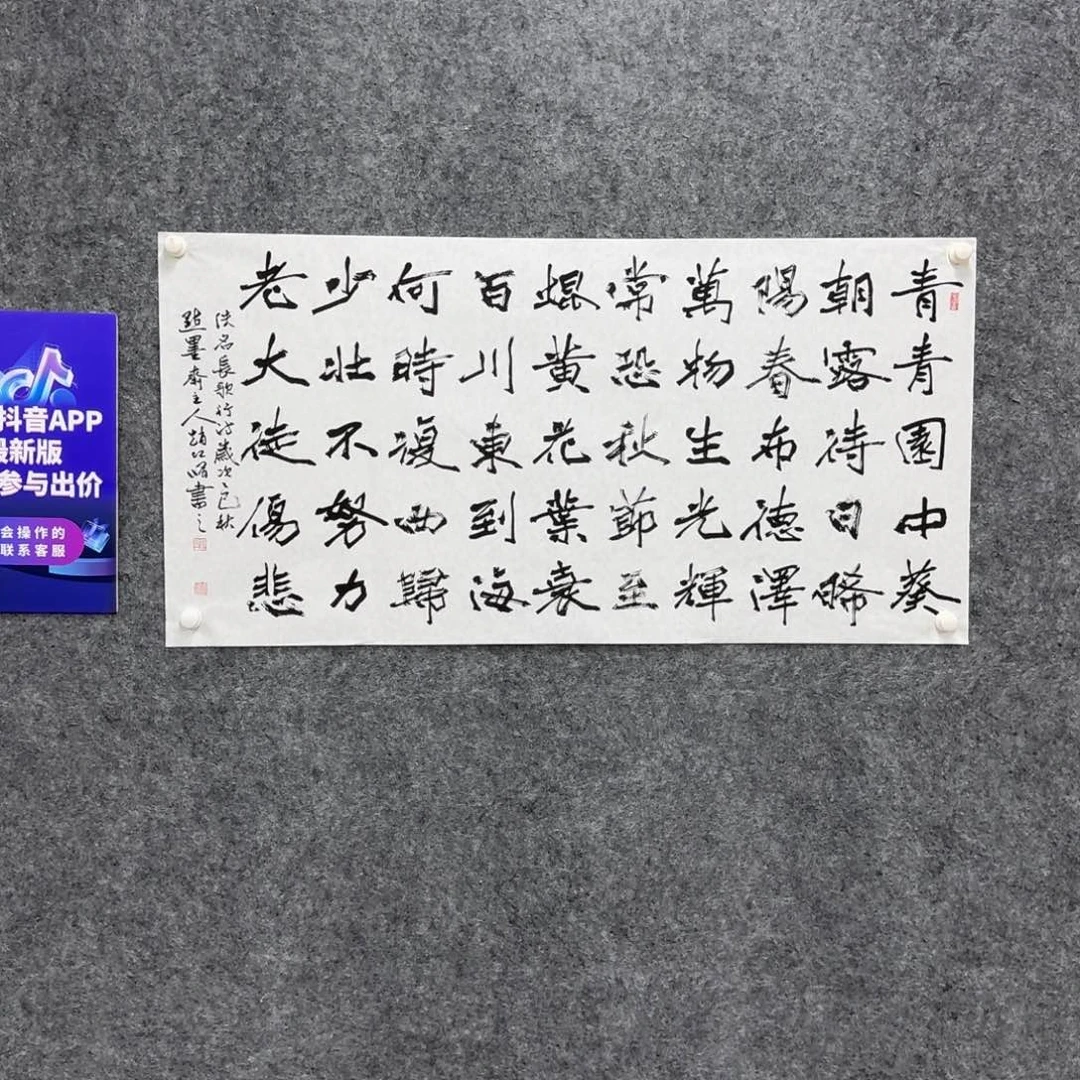 青青園中葵
朝露待日晞
陽春布德澤
萬物生光輝
常恐秋節至
焜黄花葉衰
百川東到海
何時復西歸
少壯不努力
老大徒傷悲
佚名長歌行詩歲次乙巳秋
點墨齋主人趙江書之
抖音APP
最新版
参与出价
会操作的
联系客服